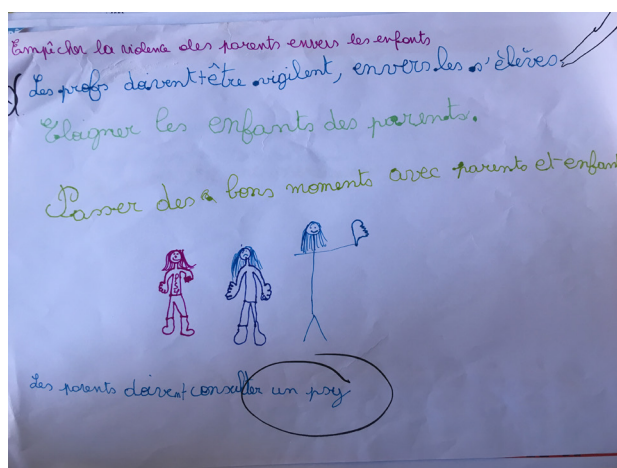 Empêcher la violence des parents envers les enfants
Les profs doivent être vigilent, envers les s'élèves
Elagner les enfants des parents.
Passer des bons moments avec parents et enfan
Les parents doivent consulter un psy